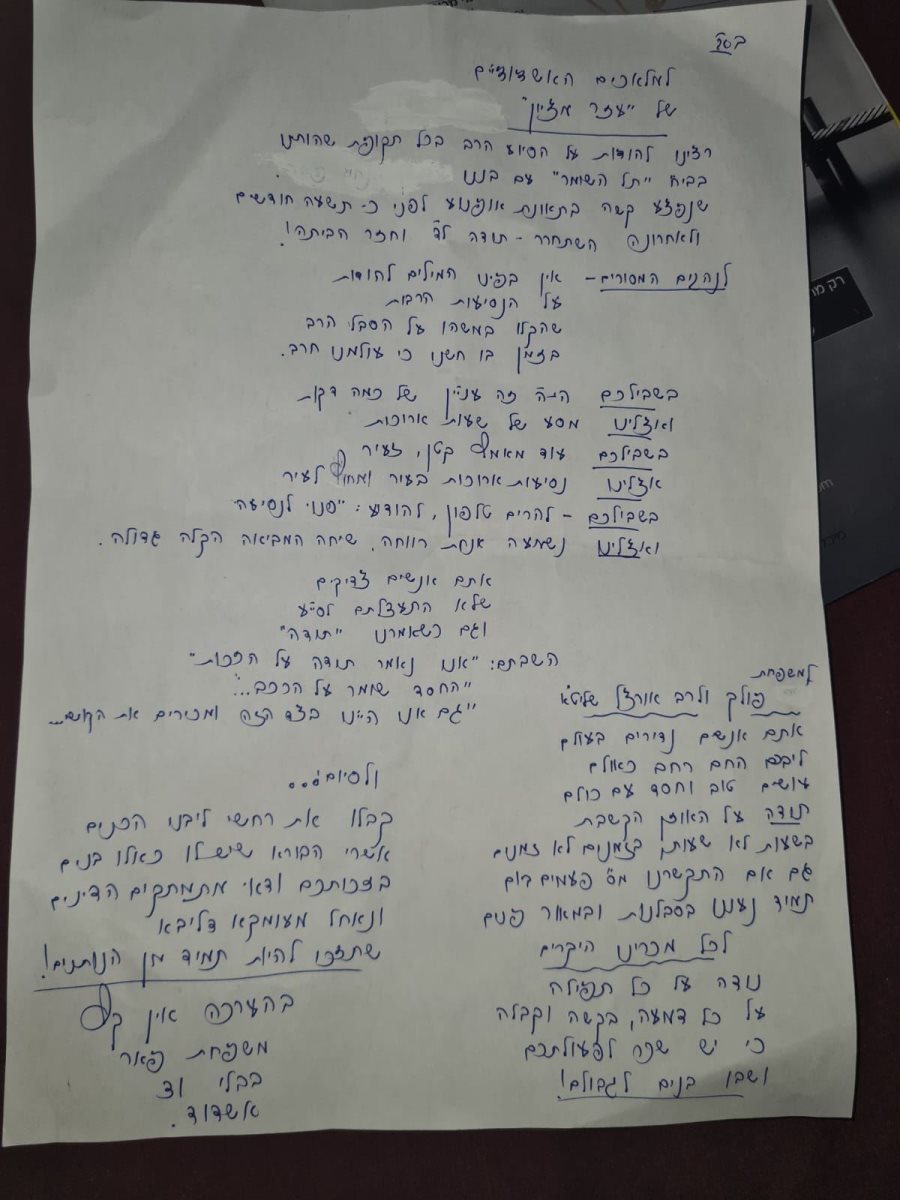 בס"ד
למלאכים האשדודיים
של "עזר מציון"
רצינו להודות על הסיוע הרב בכל תקופת שהותנו
בביה"ח "תל השומר" עם בננו
שנפצע קשה בתאונת אופנוע לפני כ-תשעה חודשים
ולאחרונה השתחרר - תודה לה' וחזר הביתה!
לנהגים המסורים - אין בפינו המילים להודות
על הנסיעות הרבות
שהקלו במשהו על הסבל הרב
בזמן בו חשנו כי עולמנו חרב.
בשבילכם היה זה עניין של כמה דקות
ואצלינו מסע של שעות ארוכות
בשבילכם עוד מאמץ קטן, זעיר
אצלינו נסיעות ארוכות בעיר ומחוץ לעיר
בשבילכם - להרים טלפון, להודיע: "פנוי לנסיעה"
ואצלינו נשמעה אנחת רווחה, שיחה המביאה הקלה גדולה.
אתם אנשים צדיקים
שלא התעצלתם לסייע
וגם כשאמרנו "תודה"
השבתם: "אנו נאמר תודה על הזכות"
"החסד שומר על הרכב...
"גם אנו היינו בצד הזה ומכירים את הקושי...
למשפחת
פולק ולרב אורצל שליט"א
אתם אנשים נדירים בעולם
ליבכם החם רחב כאולם
עושים טוב וחסד עם כולם
תודה על האוזן הקשבת
בשעות לא שעות, בזמנים לא זמנים
גם אם התקשרנו מס' פעמים ביום
תמיד נענינו בסבלנות ובמאור פנים
לכל מכרינו היקרים
נודה על כל תפילה
על כל דמעה, בקשה וקבלה
כי יש שכר לפעולתכם
ושבו בנים לגבולם!
ולסיום:...
קבלו את רחשי ליבנו הכנים
אשרי הבורא שיש לו כאלו בנים
בזכותכם ודאי מתמתקים הדינים
ונאחל מעומקא דליבא
שתזכו להיות תמיד מן הנותנים!
בהערכה אין קץ
משפחת פאר
בבלי 13
אשדוד.
רק מו